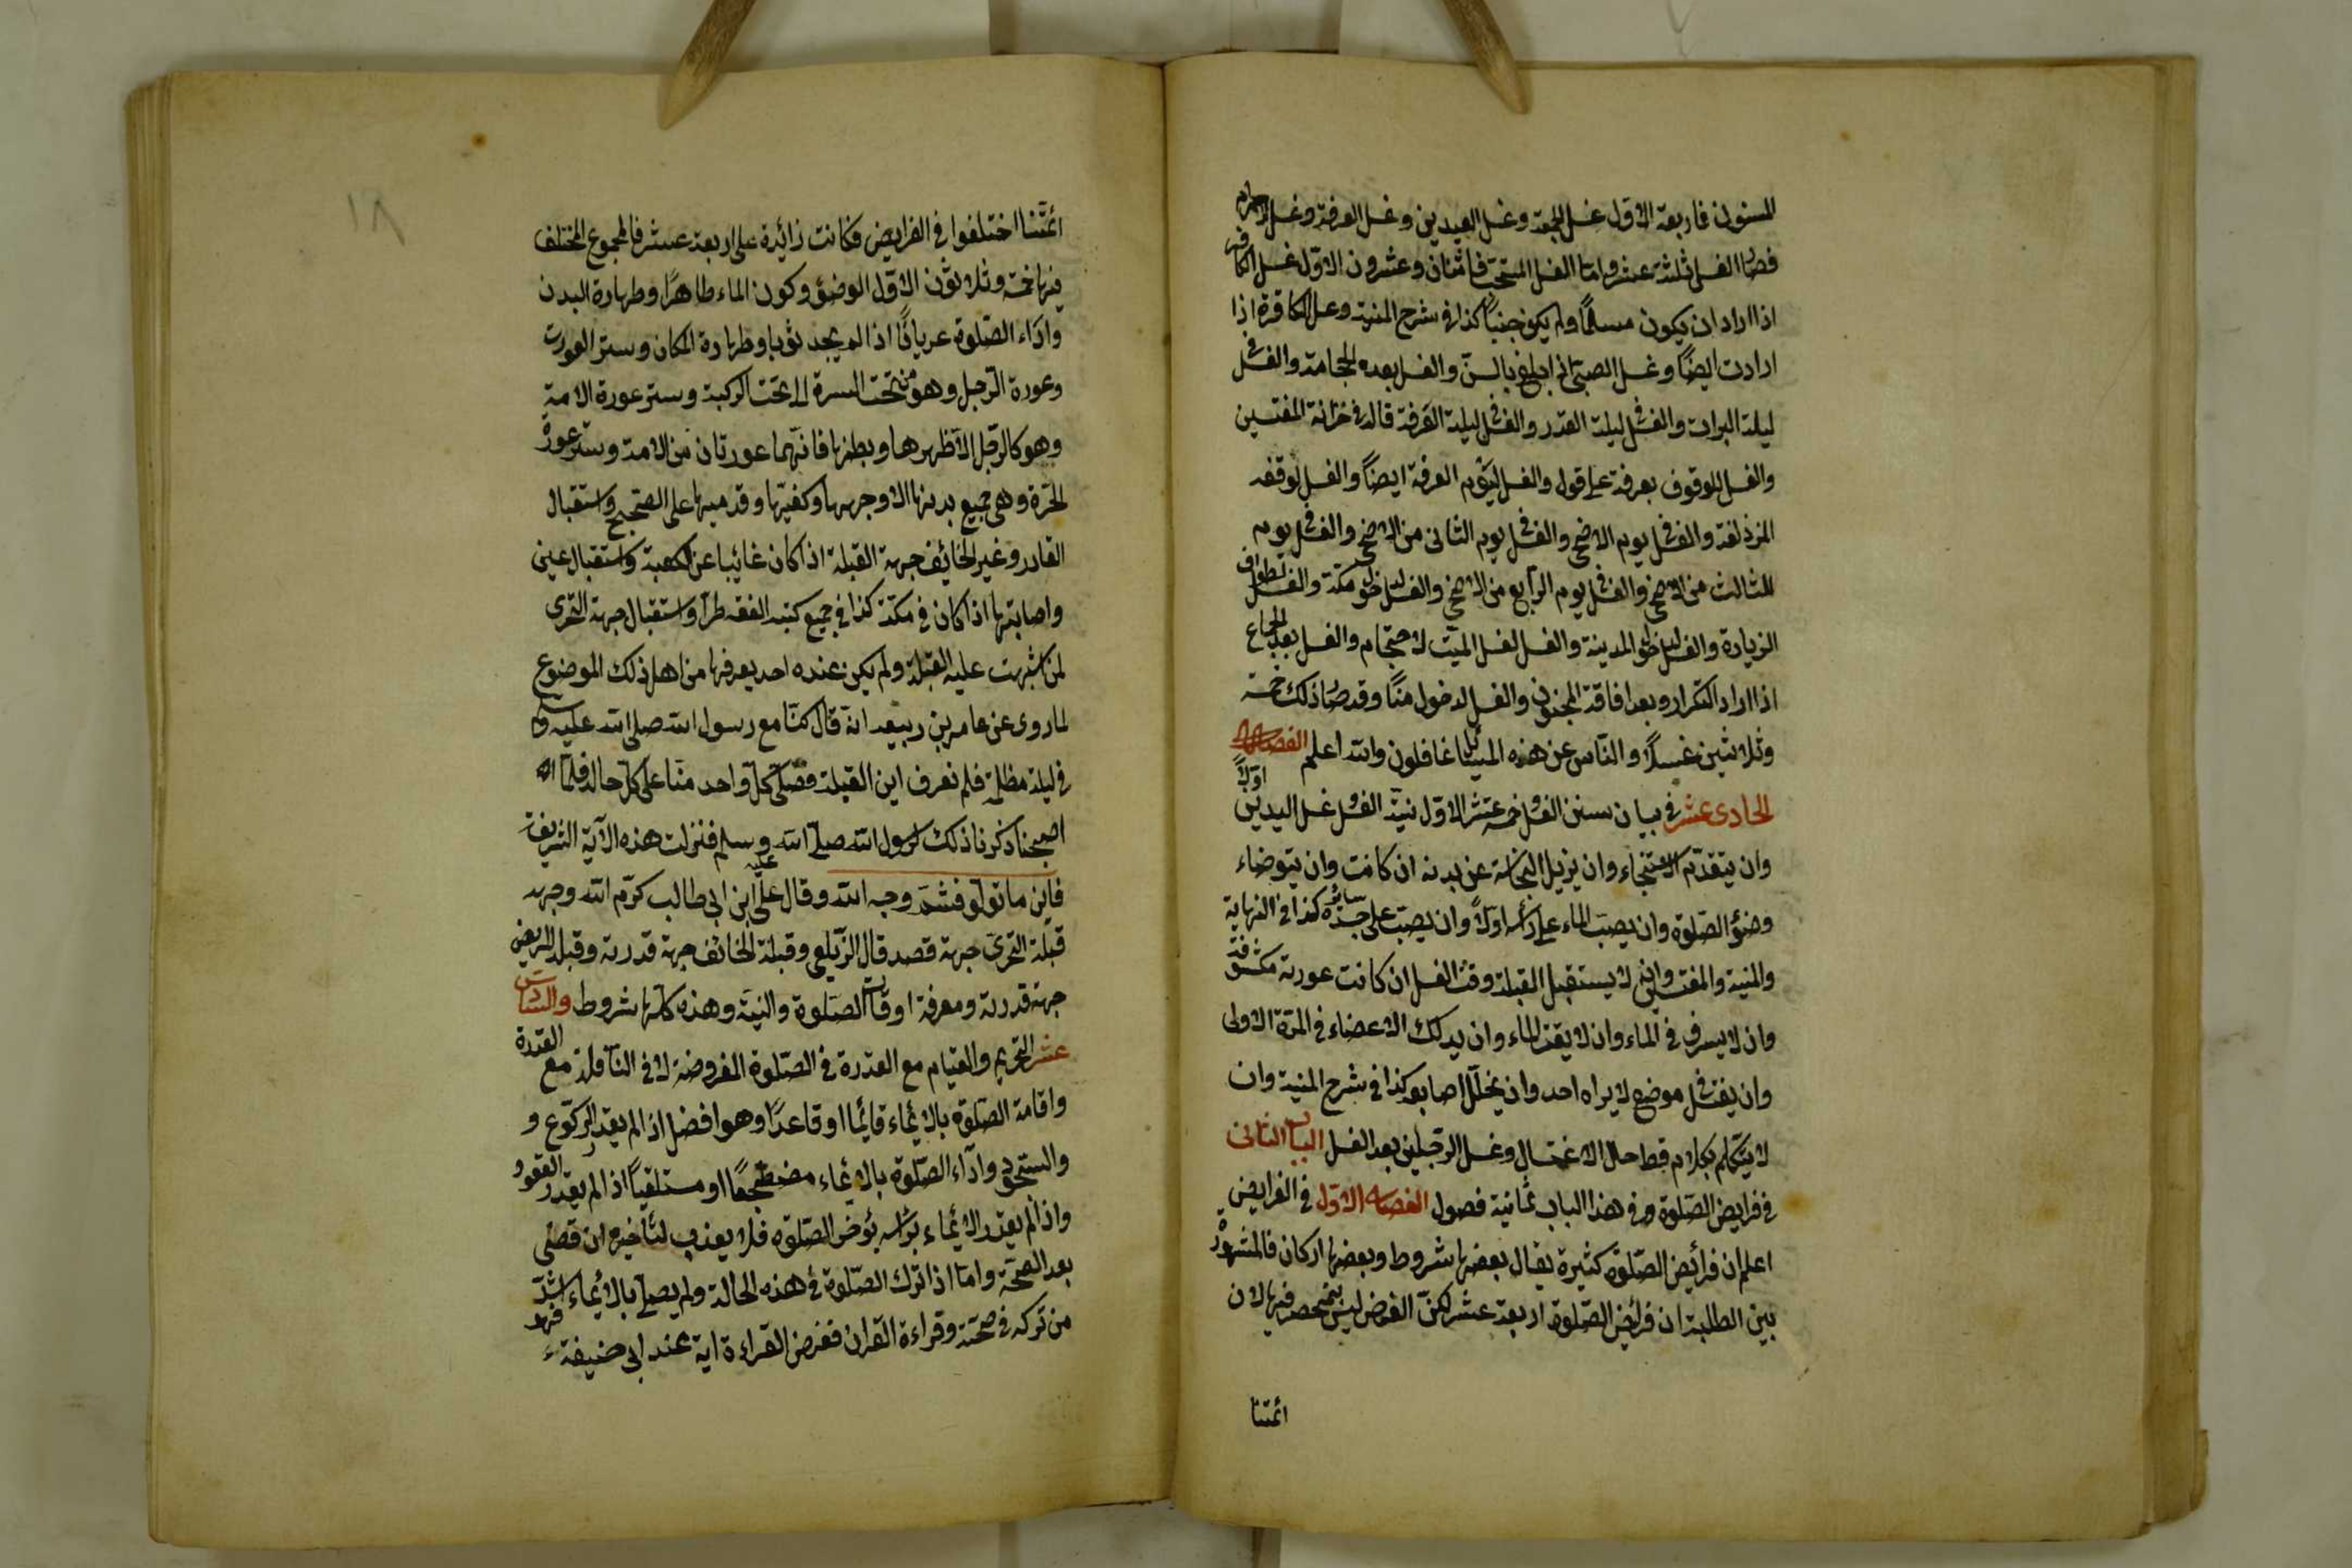 المسنون فاربعة الاول غسل الجمعة وغسل العيدين وغسل العرفة وغسل الاحرام
فصار الغسل ثلثة عشر واما الغسل المستحب فاثنان وعشرون الاول غسل الكافر
اذا اراد ان يكون مسلمًا ولم يكن جنبًا كذا فى شرح المنية وغسل الكافرة اذا
ارادت ايضًا وغسل الصبى اذا بلغ بالسن والغسل بعد الحجامة والغسل فى
ليلة البرات والغسل فى ليلة القدر والغسل فى ليلة العرفة قاله فى خزانة المفتين
والغسل للوقوف بعرفة على قول والغسل ليوم العرفة ايضًا والغسل لوقفه
المزدلفة والغسل فى يوم الاضحى والغسل فى يوم الثانى من الاضحى والغسل فى يوم
الثالث من الاضحى والغسل فى يوم الرابع من الاضحى والغسل لدخول مكة والغسل لطواف
الزيارة والغسل لدخول المدينة والغسل لغسل الميت لاحتجام والغسل بعد الجماع
اذا اراد التكرار وبعد افاقة المجنون والغسل لدخول منًا وقد صار ذلك خمسة
وثلاثين غسلًا والناس عن هذه المسائل غافلون والله اعلم الفصل
الحادى عشر فى بيان سنن الغسل وهى خمسة عشر الاول نية الغسل وغسل اليدين اولًا
وان يتقدم الاستنجاء وان يزيل النجاسة عن بدنه ان كانت وان يتوضاء
وضؤ الصلوة وان يصب الماء على رأسه اولًا وان يصب على سائر جسده كذا فى النهاية
والمنية والمفتين وان لا يستقبل القبلة وقت الغسل ان كانت عورته مكشوفة
وان لا يسرف فى الماء وان لا يقتر الماء وان يدلك الاعضاء فى المرة الاولى
وان يغتسل فى موضع لا يراه احد وان يخلل اصابعه كذا فى شرح المنية وان
لا يتكلم بكلام قط حال الاغتسال وغسل الرجلين بعد الغسل الباب الثانى
فى فرايض الصلوة وفى هذا الباب ثمانية فصول الفصل الاول فى الفرايض
اعلم ان فرائض الصلوة كثيرة يقال بعضها شروط وبعضها اركان فالمشهور
بين الطلبة ان فرائض الصلوة اربعة عشر لكن الفرض ليس بمنحصر فيها لان
ائمتنا
١٨
ائمتنا اختلفوا فى الفرايض فكانت زائدة على اربعة عشر فالمجموع المختلف
فيها خمسة وثلاثون الاول الوضؤ وكون الماء طاهرًا وطهارة البدن
واداء الصلوة عريانًا اذا لم يجد ثوبا وطهارة المكان وستر العورت
وعورة الرجل وهو من تحت السرة الى تحت الركبة وستر عورة الامة
وهو كالرجل الا ظهرها وبطنها فانهما عورتان من الامة وستر عورة
الحرة وهى جميع بدنها الا وجهها وكفيها وقدميها على الصحيح واستقبال
القادر وغير الخائف جهة القبلة اذا كان غائبا عن الكعبة واستقبال عينى
واصابتها اذا كان فى مكة كذا فى جميع كتب الفقه طرا واستقبال جهة التحرى
لمن اشتبهت عليه القبلة ولم يكن عنده احد يعرفها من اهل ذلك الموضوع
لما روى عن عامر بن ربيعه انه قال كنا مع رسول الله صلى الله عليه وسلم
فى ليلة مظلمة فلم نعرف اين القبلة فصلى كل واحد منا على كل حاله فلما
اصبحنا ذكرنا ذلك لرسول الله صلى الله عليه وسلم فنزلت هذه الآية الشريفة
فاين ما تولو فثم وجه الله وقال على ابن ابى طالب كرم الله وجهه
قبلة التحرى جهة قصد قال الزيلعى وقبلة الخائف جهة قدرته وقبلة المريض
جهة قدرته ومعرفة اوقات الصلوة والنية وهذه كلها شروط والسادس
عشر التحريم والقيام مع القدرة فى الصلوة المفروضة لا فى النافلة مع القدرة
واقامة الصلوة بالايماء قائما او قاعدًا وهو افضل اذا لم يقدر الركوع و
والسجود وادآء الصلوة بالايماء مضطجعًا او مستلقيًا اذا لم يقدر القعود
واذا لم يقدر الايماء برأسه يؤخر الصلوة فلا يعذب لتأخيره ان قضى
بعد الصحة واما اذا ترك الصلوة فى هذه الحالة ولم يصلى بالايماء فهو اشد
من تركه فى صحته وقراءة القران ففرض القراءة اية عند ابى حنيفة